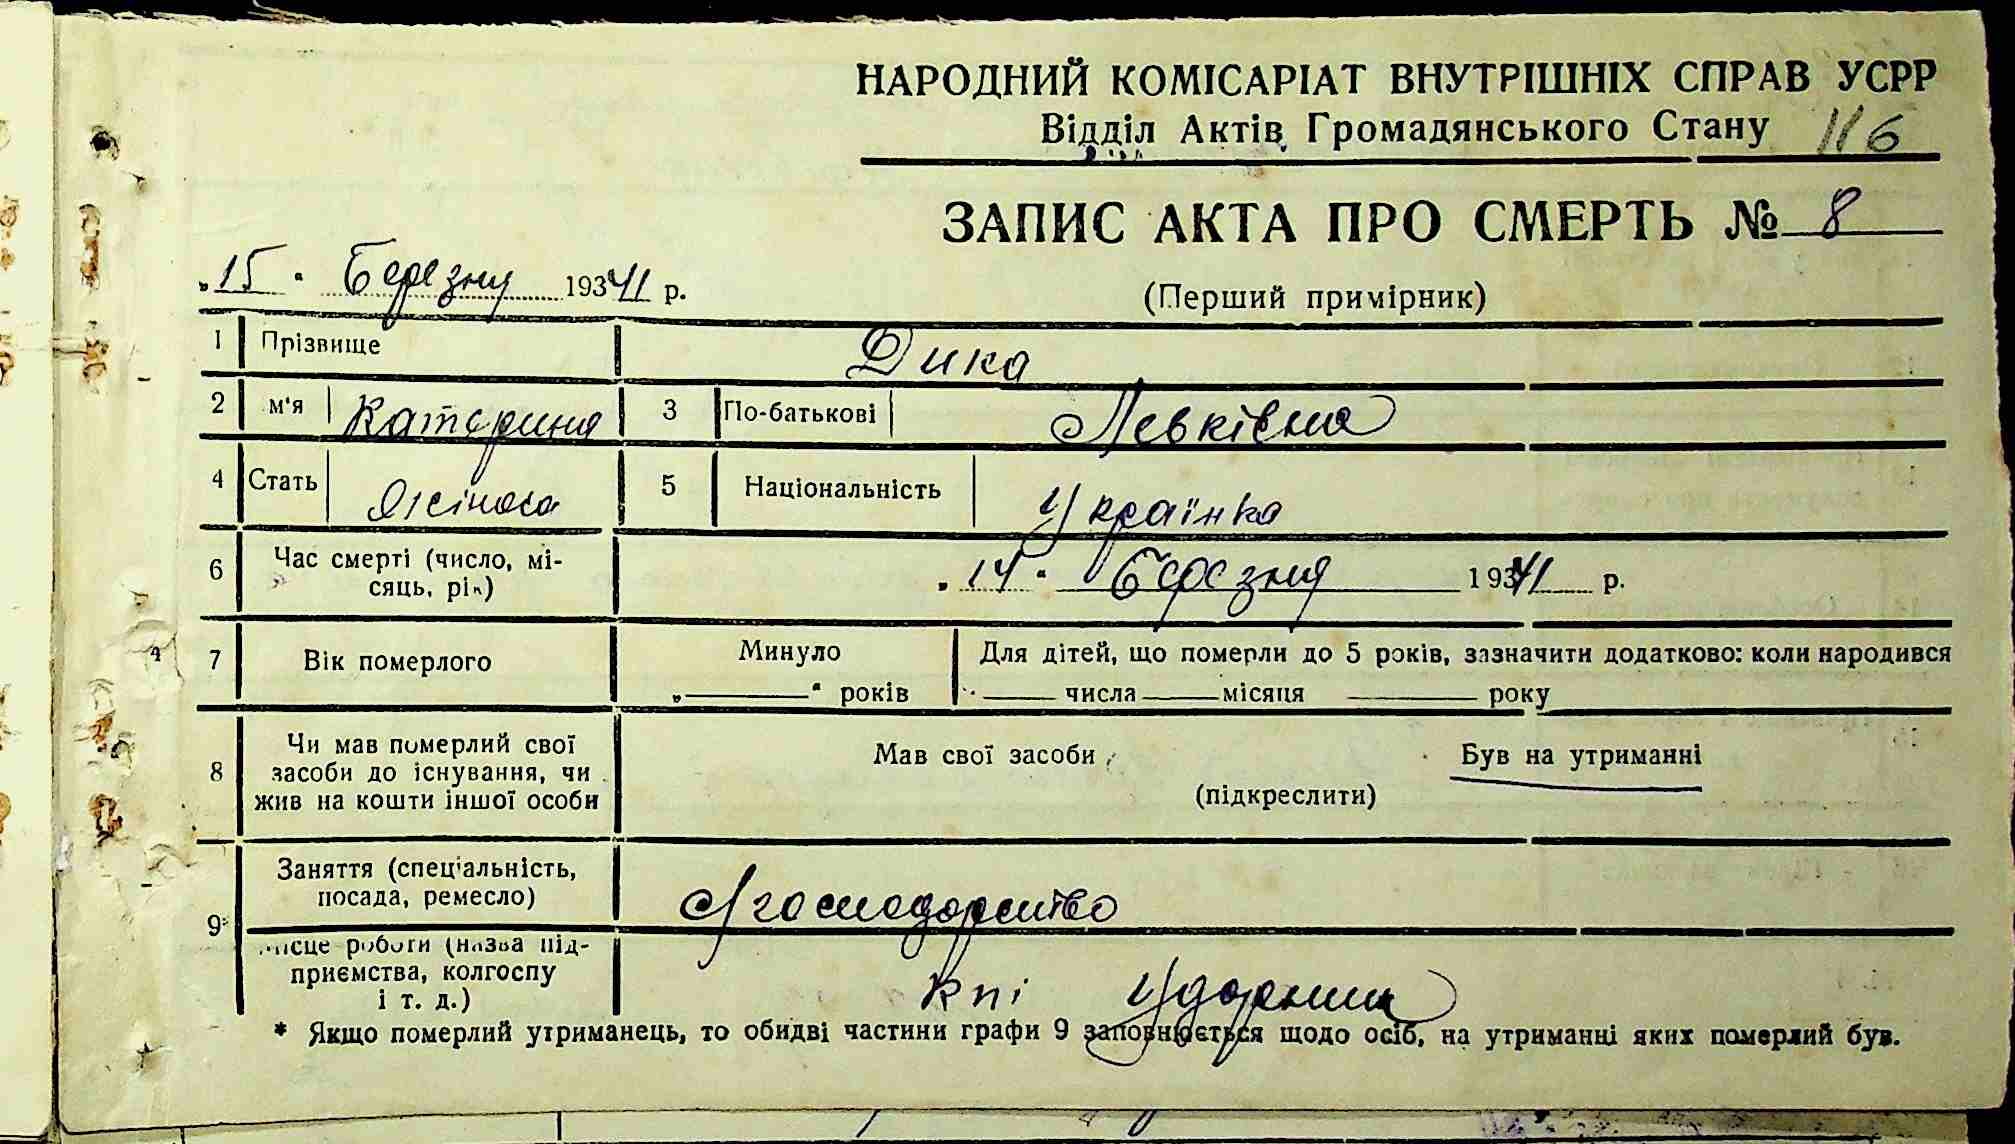 НАРОДНИЙ КОМІСАРІАТ ВНУТРІШНІХ СПРАВ УСРР
Відділ Актів Громадянського Стану 116
ЗАПИС АКТА ПРО СМЕРТЬ № 8
„15" Березня 19341 р.
(Перший примірник)
1 Прізвище Дика
2 м'я Катерина 3 По-батькові Левківна
4 Стать Жіноча 5 Національність Українка
6 Час смерті (число, мі-
сяць, рік) „14" Березня 1941 р.
7 Вік померлого Минуло Для дітей, що померли до 5 років, зазначити додатково: коли народився
„ " років числа місяця року
8 Чи мав померлий свої
засоби до існування, чи
жив на кошти іншої особи
Мав свої засоби Був на утриманні
(підкреслити)
9 Заняття (спеціальність,
посада, ремесло) господарство
Місце роботи (назва під-
приємства, колгоспу
і т. д.) Ударник
* Якщо померлий утриманець, то обидві частини графи 9 заповнюється щодо осіб, на утриманні яких померлий був.